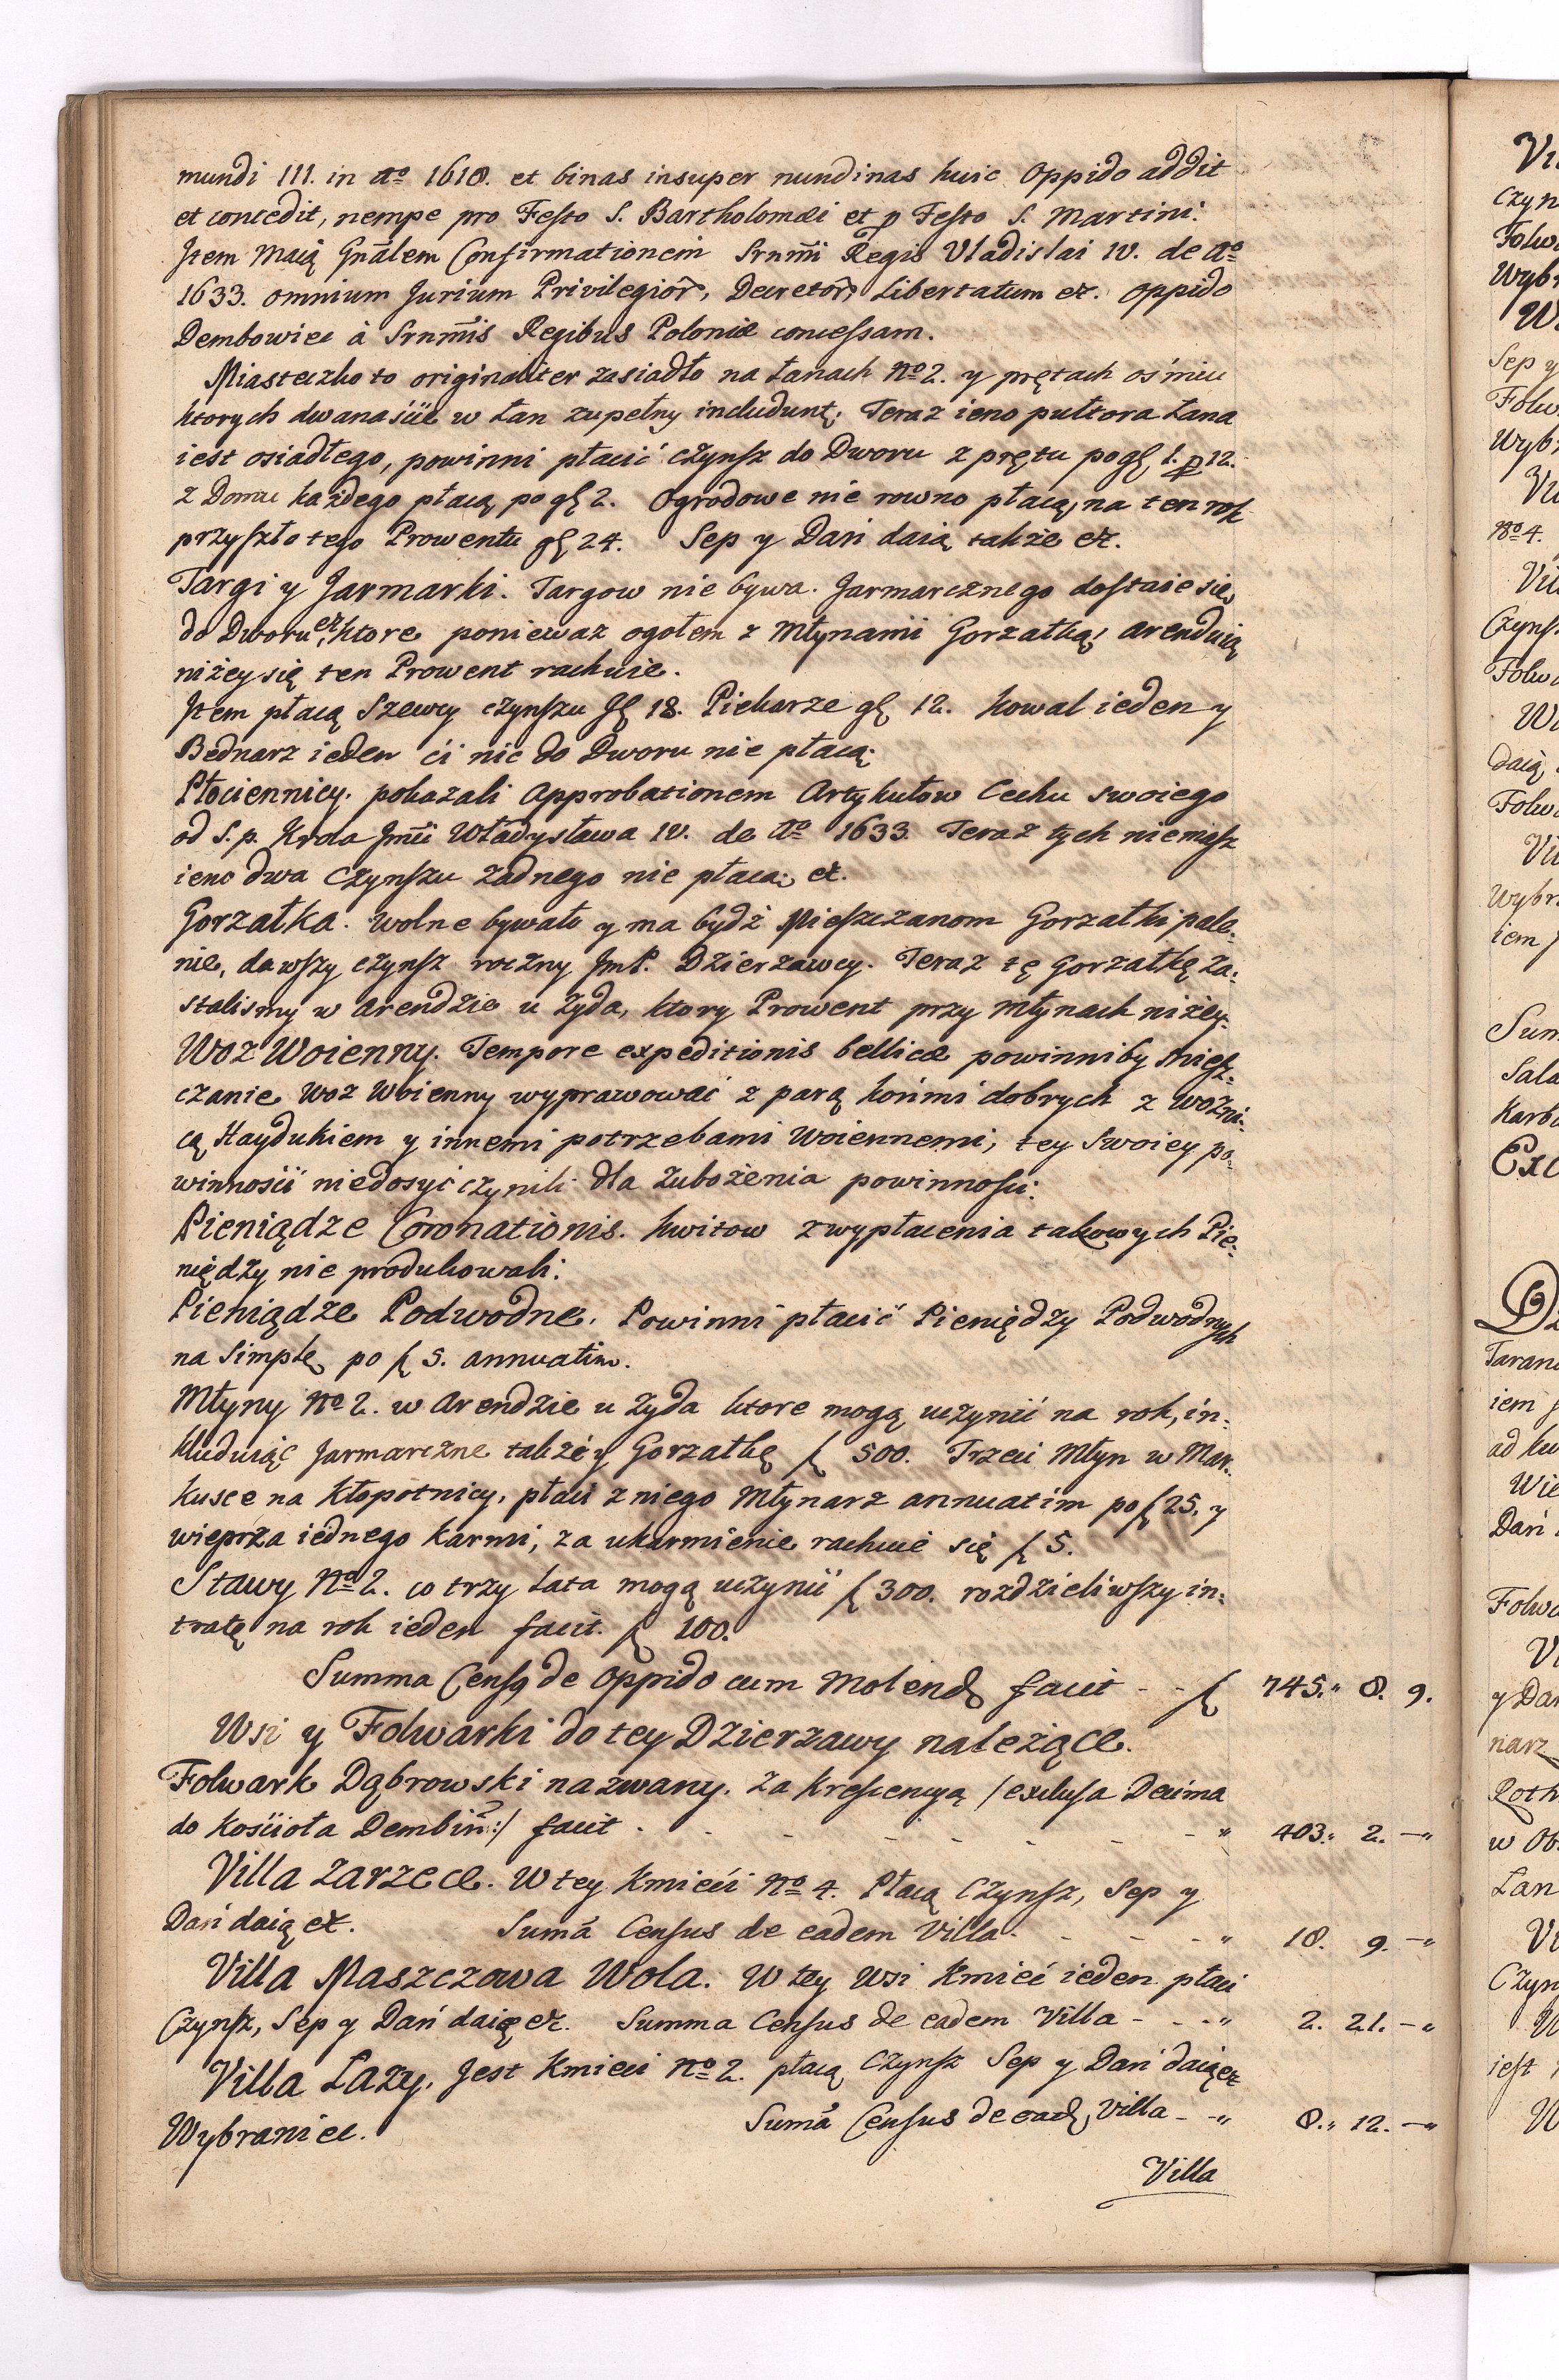 mundi III. in Aº 1618. et binas insuper nundinas huic Oppido addit
et concedit, nempe pro Festo S. Bartholomæi et p Festo S. Martini.
Item Maią Gnãlem Confirmationem Srnm̃i Regis Vladislai IV. de Aº
1633. omnium Jurium Privilegior̃, Decretor̃, Libertatum et. oppido
Dembowiec à Srnm̃is Regibus Poloniæ concessam.
Miasteczko to originaliter zasiadło na Łanach Nº 2. y prętach ośmiu
ktorych dwanaście w Łan zupełny includunt. Teraz ieno pułtora Łana
iest osiadłego, powinni płacić czynsz do Dworu z prętu po gł 1. ₰ 12.
z Domu każdego płacą po gł 2. Ogrodowe nie rowno płacą, na ten rok
przyszło tego Prowentu gł 24. Sep y Dań daią także et.
Targi y Jarmarki. Targow nie bywa. Jarmarcznego dostaie sie
do Dworu et. ktore ponieważ ogołem z Młynami Gorzałką, arenduią
niżey się ten Prowent rachuie.
Item płacą Szewcy czynszu gł 18. Piekarze gł 12. Kowal ieden y
Bednarz ieden ći nic do Dworu nie płacą.
Płociennicy. pokazali Approbationem Artykułow Cechu swoiego
od S. p. Krola Jm̃ci Władysława IV. de Aº 1633. Teraz tych niemasz
ieno dwa Czynszu żadnego nie płacą et.
Gorzałka. Wolne bywało y ma bydź Mieszczanom Gorzałki pale-
nie, dawszy czynsz roczny JmP. Dzierzawcy. Teraz tę Gorzałkę za-
stalismy w Arendzie u Żyda, ktory Prowent przy Młynach niżey.
Woz Woienny. Tempore expeditionis bellicæ powinni by Miesz-
czanie Woz Woienny wyprawować z parą końmi dobrych z Wozni-
cą Haydukiem y innemi potrzebami Woiennemi, tey swoiey po-
winności niedosyć czynili dla zubożenia powinności.
Pieniądze Coronationis. Kwitow z wypłacenia takowych Pie-
niędzy nie produkowali.
Pieniądze Podwodne. Powinni płacić Pieniędzy Podwodnych
na Simplę po ł 5. annuatim.
Młyny Nº 2. w Arendzie u Żyda ktore mogą uczynić na rok, in-
kluduiąc Jarmarczne także y Gorzałkę ł 500. Trzeci Młyn w Mar-
kusce na Kłopotnicy, płaci z niego Młynarz annuatim po ł 25. y
wieprza iednego karmi, za ukarmienie rachuie się ł 5.
Stawy Nº 2. co trzy Lata mogą uczynić ł 300. rozdzieliwszy in-
tratę na rok ieden facit. ł 100.
Summa Censq de Oppido cum Molend facit - - ł 745.. 8. 9.
Wsi y Folwarki do tey Dzierzawy należące.
Folwark Dąbrowski nazwany. Za Krescencyą /exclusa Decima
do Kościoła Dembiñ:/ facit - - - - - - - " 403.. 2. -"
Villa Zarzece. W tey Kmieći Nº 4. Płacą Czynsz, Sep y
Dań daią et. Sum̃a Census de eadem Villa - - - " 18. 9. -"
Villa Maszczowa Wola. W tey Wsi Kmieć ieden płaci
Czynsz, Sep y Dań daię et. Summa Census de eadem Villa - - - " 2. 21. -"
Villa Łazy. Jest Kmieci Nº 2. płacą Czynsz Sep y Dań daią et
Wybraniec. Sum̃a Census de ead. Villa - - " 8.. 12. -"
Villa